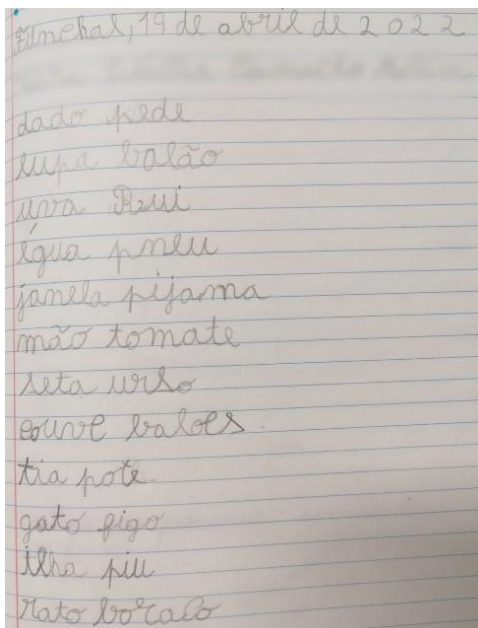 Funchal, 19 de abril de 2022
dado pede
lupa balão
uva Rui
égua pneu
janela pijama
mão tomate
seta urso
couve balões
tia pote
gato figo
ilha piu
rato boraco